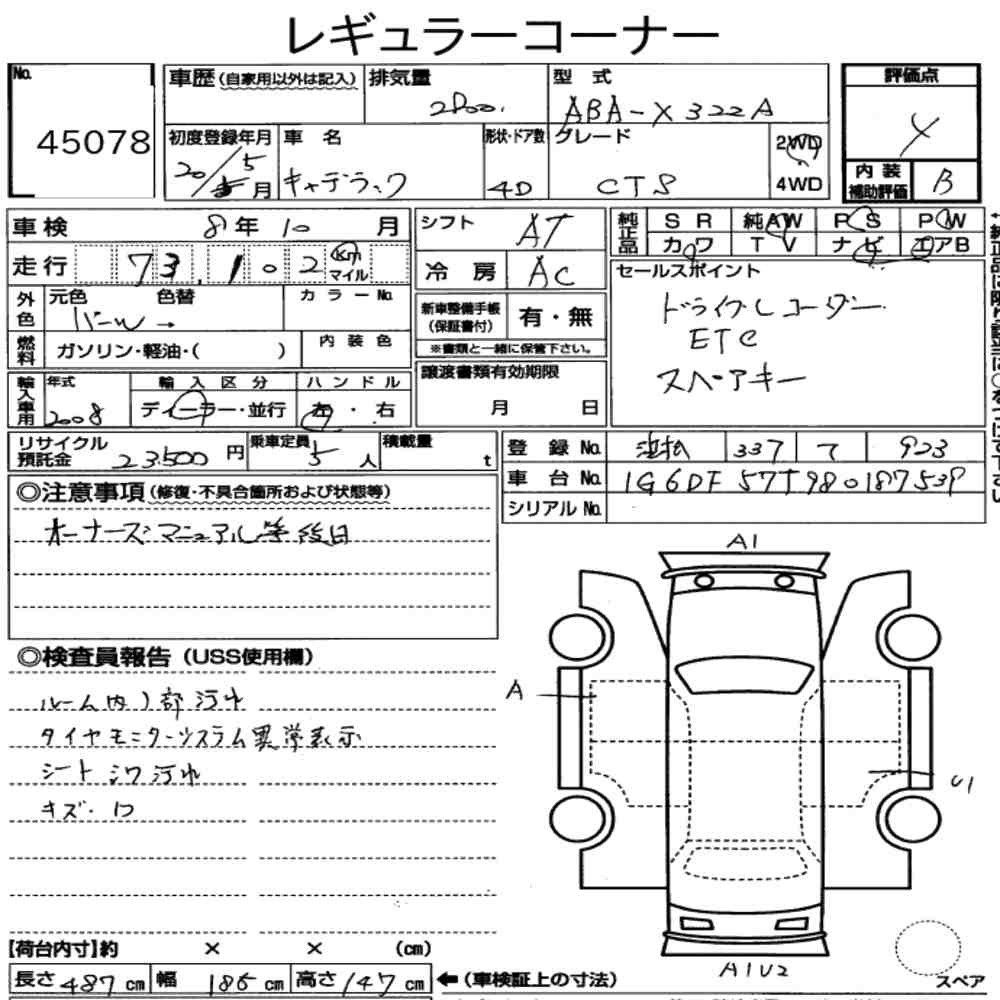 レギュラーコーナー
No. 45078
車歴(自家用以外は記入)
排気量 2800
型式 ABA-X322A
評価点 4
内装補助評価 B
初度登録年月 20/5月
車名 キャデラック
形状・ドア数 4D
グレード CTS
2WD
4WD
車検 8年10月
走行 73,102 Km マイル
シフト AT
冷房 AC
純正品 SR 純AW PS PW
カワ TV ナビ エアB
外色 元色 色替 カラーNo.
パール
燃料 ガソリン・軽油・( )
内装色
新車整備手帳(保証書付) 有・無
※書類と一緒に保管下さい。
セールスポイント
ドライブレコーダー
ETC
スペアキー
輸入車用 年式 2008
輸入区分 ディーラー・並行
ハンドル 左・右
譲渡書類有効期限
月 日
リサイクル預託金 23500円
乗車定員 5人
積載量 t
登録No. 浜松 337 て 923
車台No. 1G6DF57T980187539
シリアルNo.
◎注意事項(修復・不具合箇所および状態等)
オーナーズマニュアル等後日
◎検査員報告(USS使用欄)
ルーム内1部汚れ
タイヤモニターシステム異常表示
シートシワ汚れ
キズ・凹
A1
A
U1
A1U2
スペア
【荷台内寸】約 × × (cm)
長さ487cm 幅186cm 高さ147cm
←(車検証上の寸法)